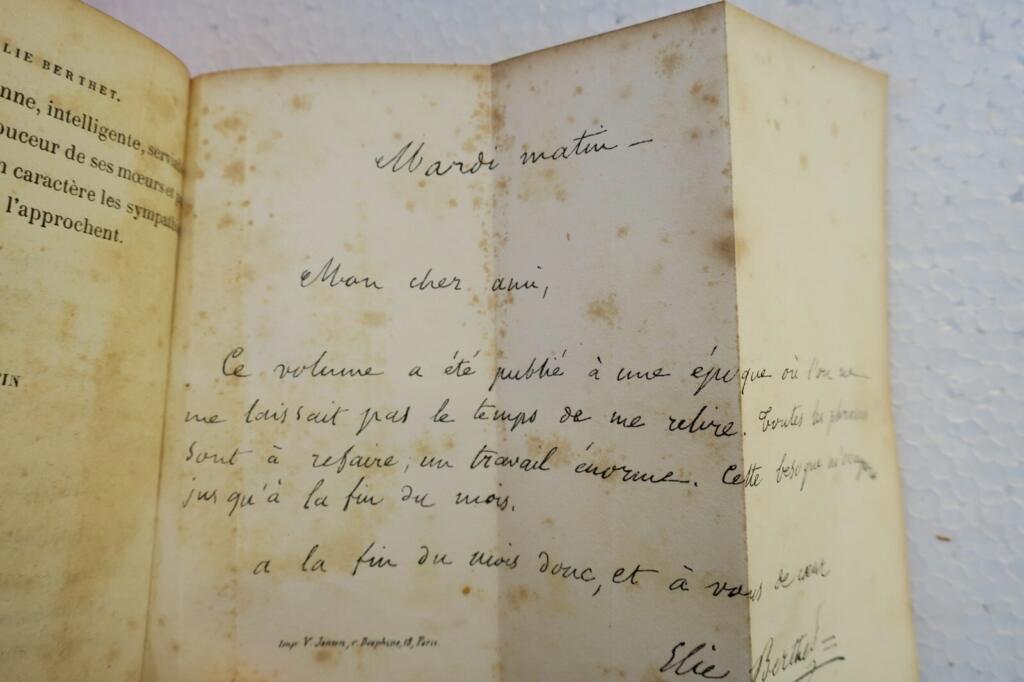 LIE BERTHET.
nne, intelligente,
ouceur de ses mœurs et
n caractère les
l'approchent.
TIN
Mardi matin —
Mon cher ami,
Ce volume a été publié à une époque où l'on ne
me laissait pas le temps de me relire. Toutes les phrases
sont à refaire, un travail énorme. Cette besogne
jusqu'à la fin du mois.
a la fin du mois donc, et à vous de cœur
Elie Berthet
Imp. V. Janson, r. Dauphine, 18, Paris.